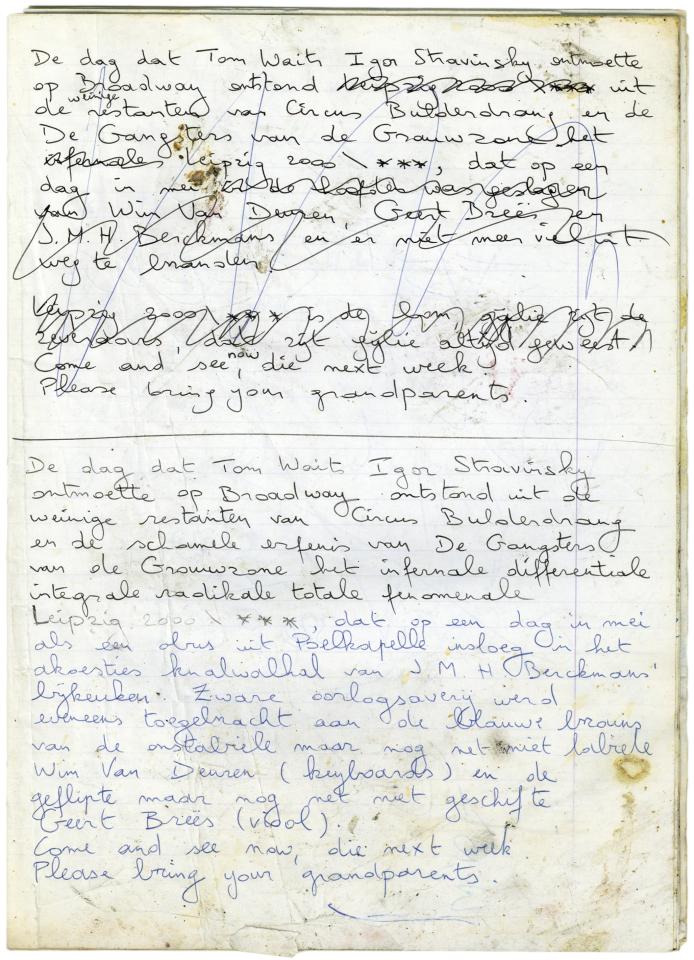 De dag dat Tom Waits Igor Stravinsky ontmoette
op Broadway ontstond Leipzig 2000 \ *** uit
de weinige restanten van Circus Bulderdrang en de
De Gangsters van de Grauwzone het
infernale Leipzig 2000 \ ***, dat op een
dag in mei in de hoofden was geslagen
van Wim Van Deuren, Geert Breës en
J.M.H. Berckmans en er niet meer viel uit
weg te branden.
Leipzig 2000 \ *** is de bom, jullie zijt de
zijt gijlie altijd geweest.
Come and see now, die next week
Please bring your grandparents.
De dag dat Tom Waits Igor Stravinsky
ontmoette op Broadway ontstond uit de
weinige restanten van Circus Bulderdrang
en de schamele erfenis van De Gangsters
van de Grouwzone het infernale differentiale
integrale radikale totale fenomenale
Leipzig 2000 \ ***, dat op een dag in mei
als een obus uit Poelkapelle insloeg in het
akoesties knalwalhal van J.M.H. Berckmans'
bijkeuken. Zware oorlogsaverij werd
eveneens toegebracht aan de blauwe brains
van de onstabiele maar nog net niet labiele
Wim Van Deuren (keyboards) en de
geflipte maar nog net niet geschifte
Geert Breës (viool).
Come and see now, die next week.
Please bring your grandparents.